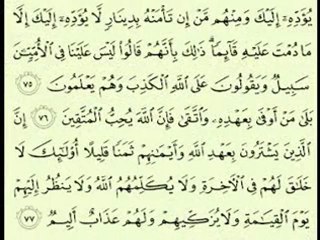 يُؤَدِّهِۦٓ إِلَيْكَ وَمِنْهُم مَّنْ إِن تَأْمَنْهُ بِدِينَارٍ لَّا يُؤَدِّهِۦٓ إِلَيْكَ إِلَّا
مَا دُمْتَ عَلَيْهِ قَآئِمًا ۗ ذَٰلِكَ بِأَنَّهُمْ قَالُوا۟ لَيْسَ عَلَيْنَا فِى ٱلْأُمِّيِّۦنَ
سَبِيلٌ وَيَقُولُونَ عَلَى ٱللَّهِ ٱلْكَذِبَ وَهُمْ يَعْلَمُونَ ٧٥
بَلَىٰ مَنْ أَوْفَىٰ بِعَهْدِهِۦ وَٱتَّقَىٰ فَإِنَّ ٱللَّهَ يُحِبُّ ٱلْمُتَّقِينَ ٧٦ إِنَّ
ٱلَّذِينَ يَشْتَرُونَ بِعَهْدِ ٱللَّهِ وَأَيْمَٰنِهِمْ ثَمَنًا قَلِيلًا أُو۟لَٰٓئِكَ لَا
خَلَٰقَ لَهُمْ فِى ٱلْءَاخِرَةِ وَلَا يُكَلِّمُهُمُ ٱللَّهُ وَلَا يَنظُرُ إِلَيْهِمْ
يَوْمَ ٱلْقِيَٰمَةِ وَلَا يُزَكِّيهِمْ وَلَهُمْ عَذَابٌ أَلِيمٌ ٧٧